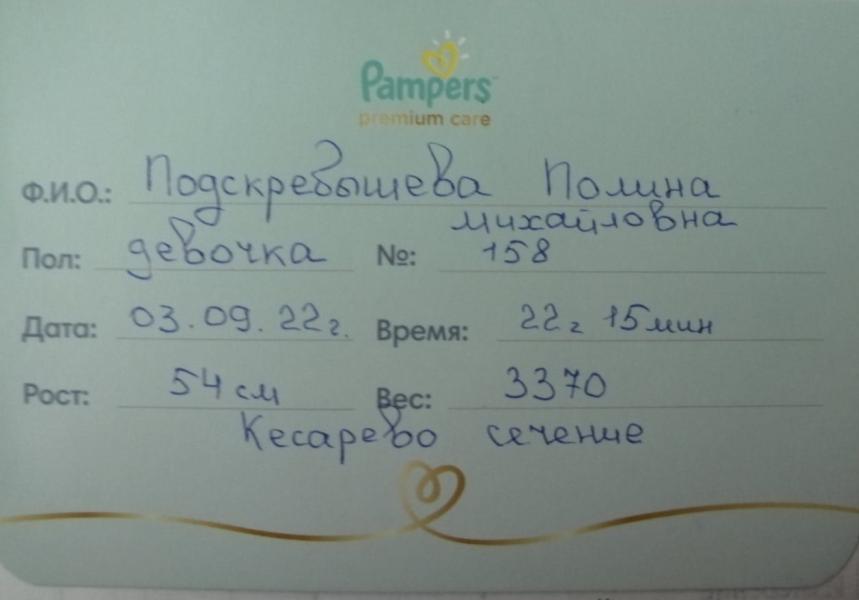 Pampers
premium care
Ф.И.О.: Подскребышева Полина
Михайловна
Пол: девочка №: 158
Дата: 03.09.22г. Время: 22г 15мин
Рост: 54 см Вес: 3370
Кесарево сечение